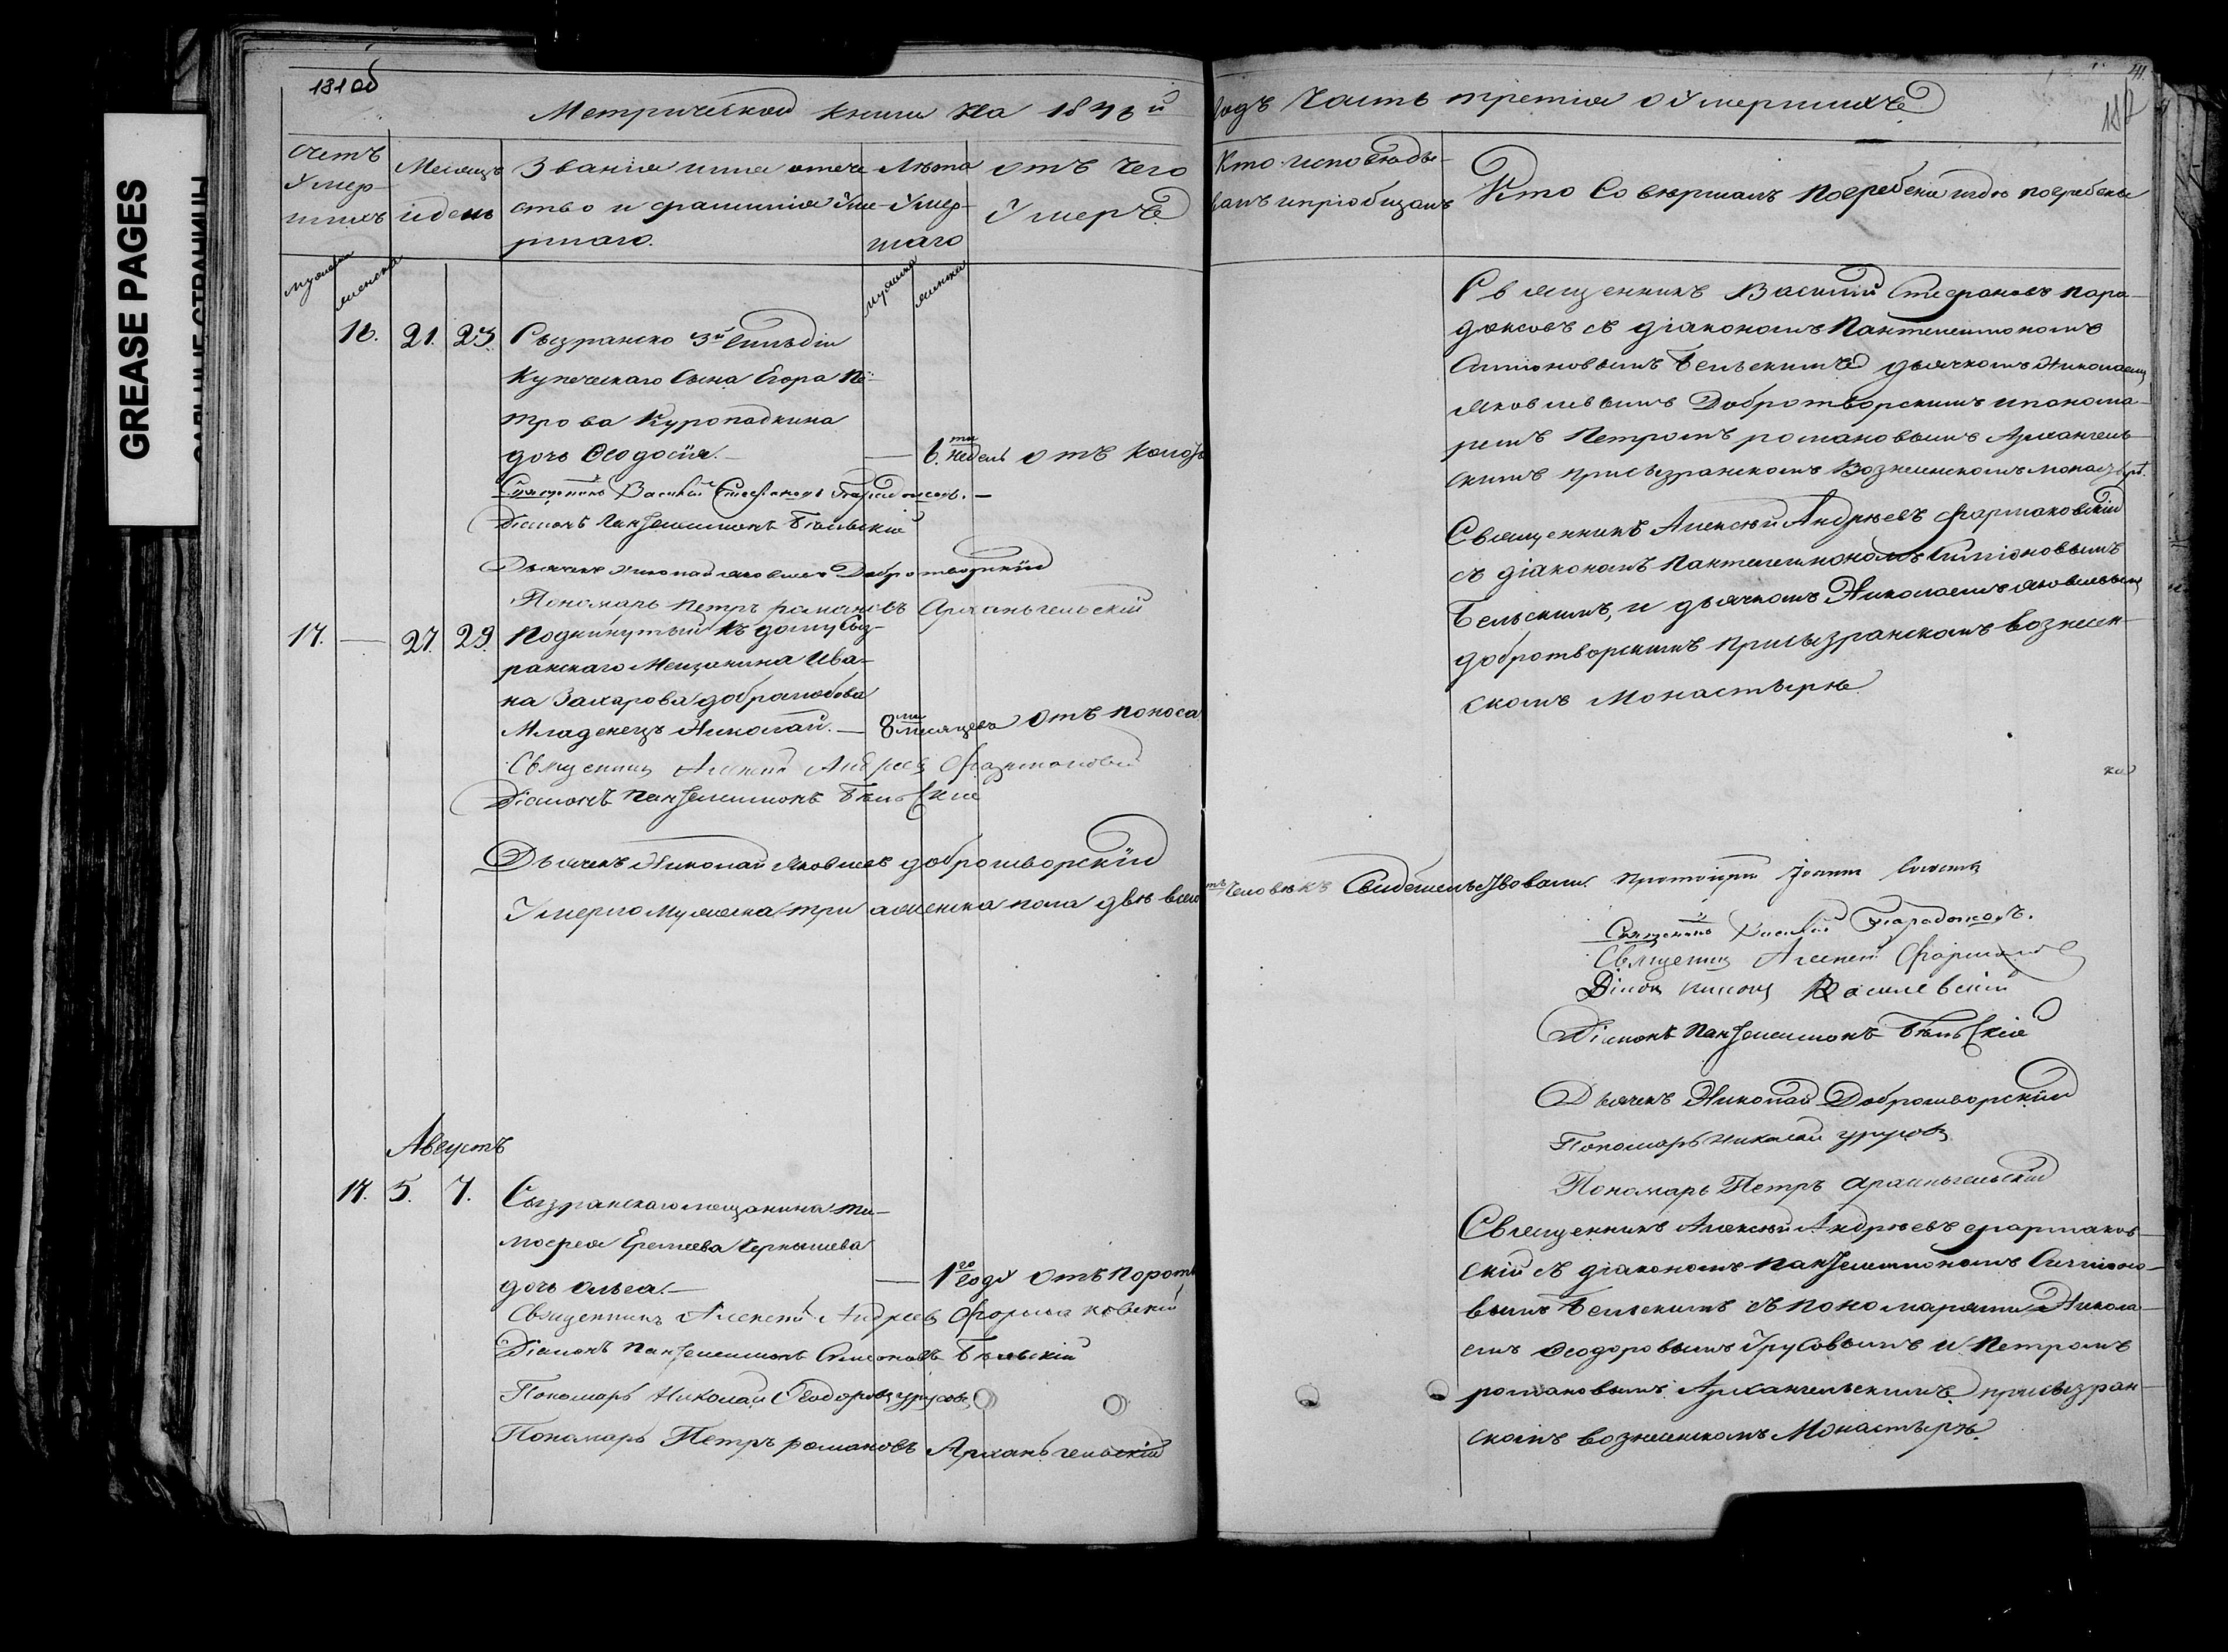 GREASE PAGES
САЛЬНЫЕ СТРАНИЦЫ
181 об
Метрической книги на 184 й
годъ Часть третія о Умершихъ
182
Счетъ Умер-шихъ
Месяцъ и день
Званіе имя отече-ство и фамилія Уме-ршаго.
Лѣта Умер-шаго
отъ чего Умеръ
Кто исповѣды-валъ и пріобщалъ
Кто Совершалъ Погребеніе и гдѣ погребены
мужеска
женска
мужеска
женска
16. 21. 23. Сызранско 3й Гильдіи
Купеческаго Сына Егора Пе-
трова Куропадкина
дочь Ѳеодосія. — 6ти недель отъ Колотья
Священникъ Василій Стефановъ Парадоксовъ. —
Діаконъ Панѳелеимонъ Бѣльскій
Дьячекъ Николай Яковлевъ Добротворскій
Пономарь Петръ романовъ Архангельскій
Священникъ Василій Стефановъ Пара-
доксовъ съ діакономъ Пантелеимономъ
Симіоновымъ Бельскимъ дьячкомъ Николаемъ
Яковлевымъ Добротворскимъ и понома-
ремъ Петромъ романовымъ Архангель-
скимъ при Сызранскомъ Вознесенскомъ монастырѣ.
17. — 27. 29. Подкинутый къ дому Сыз-
ранскаго Мещанина Ива-
на Захарова добралюбова
Младенецъ Николай. — 8ми месяцевъ отъ поноса
Священникъ Алексей Андреевъ Фармаковскій
Діаконъ Панѳелеимонъ Бѣльскій
Дьячекъ Николай Яковлевъ добротворскій
Священникъ Алексѣй Андрѣевъ Фармаковскій
съ діакономъ Пантелеимономъ Симіоновымъ
Бельскимъ, и дьячкомъ Николаемъ Яковлевымъ
добротворскимъ при Сызранскомъ Вознесен-
скомъ Монастырѣ
Умерло мужеска три а женска пола двѣ всего
человѣкъ Свидетельствовали. Протоіерей Іоаннъ
Священникъ Василій Парадоксовъ.
Священникъ Алексей Фармаковскій
Діаконъ Василевскій
Діаконъ Панѳелеимонъ Бѣльскій
Дьячекъ Николай Добротворскій
Пономарь Николай Урусовъ
Пономарь Петръ Архангельскій
Августъ
17. 5. 7. Сызранскаго мещанина Ти-
мофея Еремеева Чернышева
дочь Ольга. — 1го году отъ Породы
Священникъ Алексей Андреевъ Формаковскій
Діаконъ Панѳелеимонъ Симіоновъ Бѣльскій
Пономарь Николай Ѳеодоровъ Урусовъ
Пономарь Петръ романовъ Архангельскій
Священникъ Алексѣй Андрѣевъ Фармаков-
скій съ діакономъ Панѳелеимономъ Симіоно-
вымъ Бельскимъ съ пономарями Никола-
емъ Ѳеодоровымъ Урусовымъ и Петромъ
романовымъ Архангельскимъ при Сызран-
скомъ Вознесенскомъ Монастырѣ.